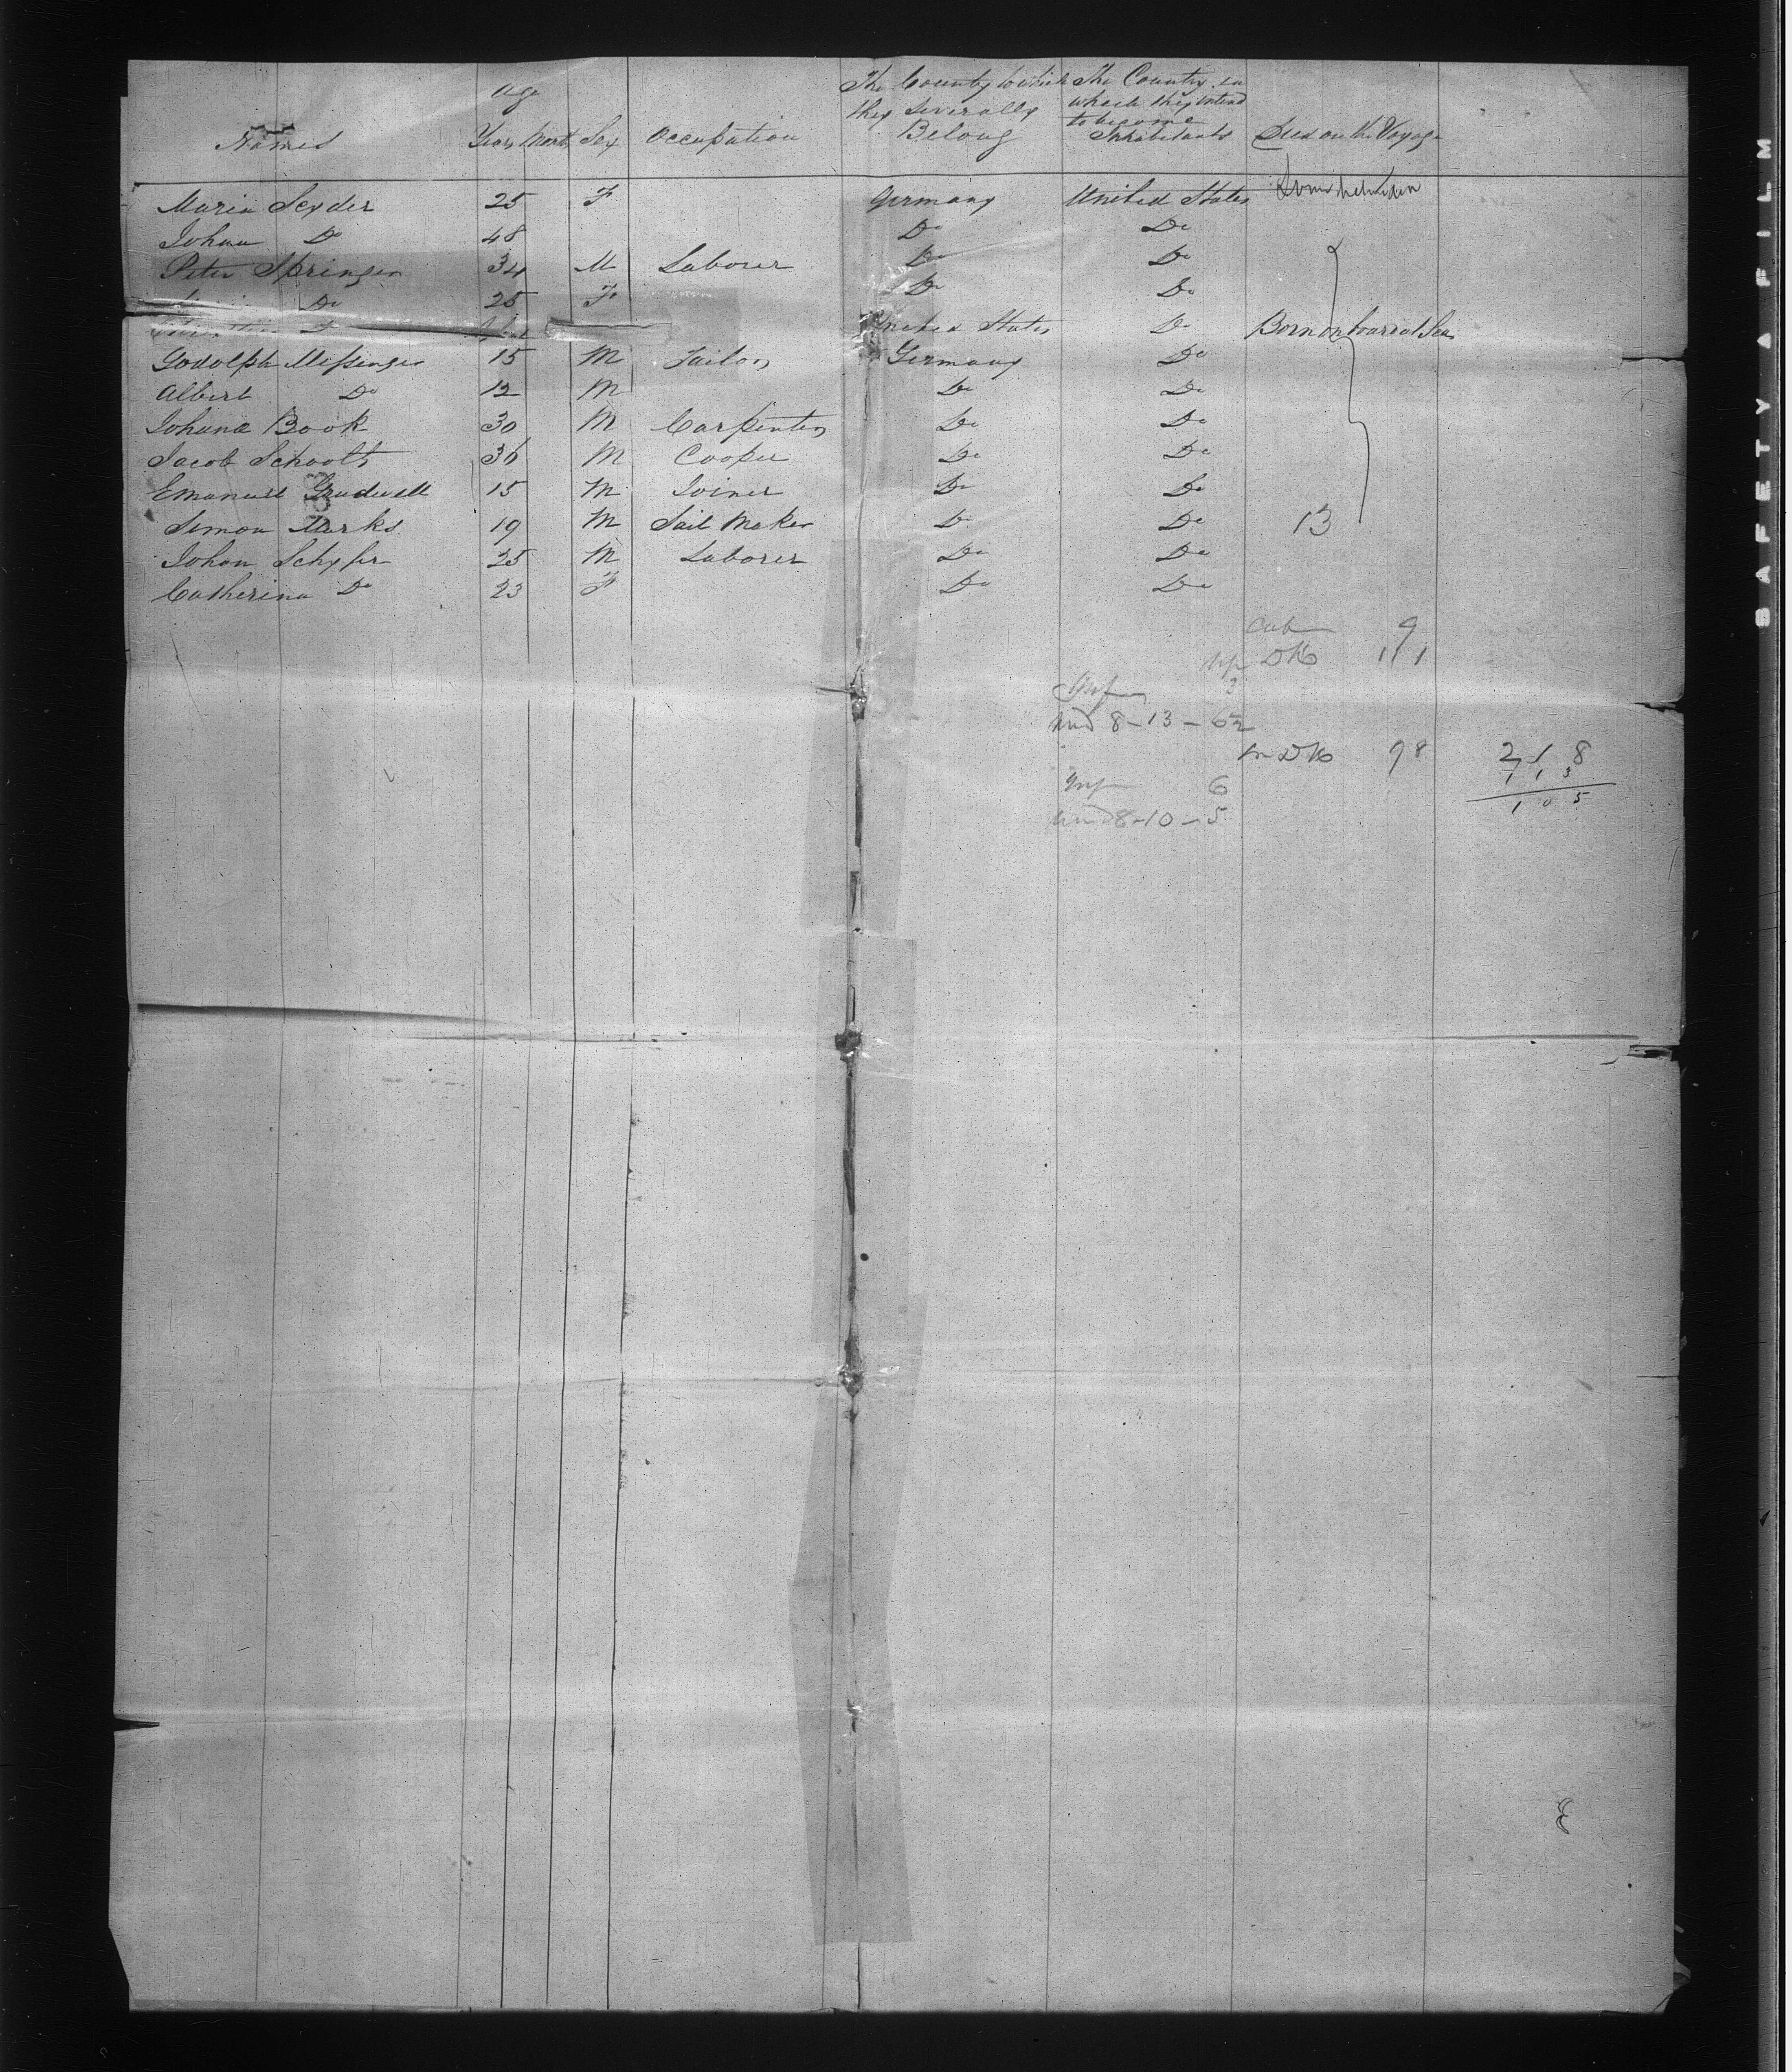 Age
The County to which The Country in
they severally which they intend
to become
Names Years Month Sex Occupation Belong Inhabitants Died on the Voyage
Maria Seyder 25 F Germany United States
Johan Do 48 Do Do
Peter Springer 34 M Laborer Do Do
Do 25 F Do Do
Do United States Do Born on board at Sea
Godolph Messenger 15 M Tailor Germany Do
Albert Do 12 M Do Do
Johana Book 30 M Carpenter Do Do
Jacob Schoolts 36 M Cooper Do Do
Emanuel Gradwell 15 M Joiner Do Do
Simon Marks 19 M Sail Maker Do Do 13
Johan Schyfer 25 M Laborer Do Do
Catherina Do 23 F Do Do
Cab 9
Up DK 111
Inf 3
und 8-13-6
DK 98 218
113
Inf 6 105
und 8-10-5
SAFETY FILM